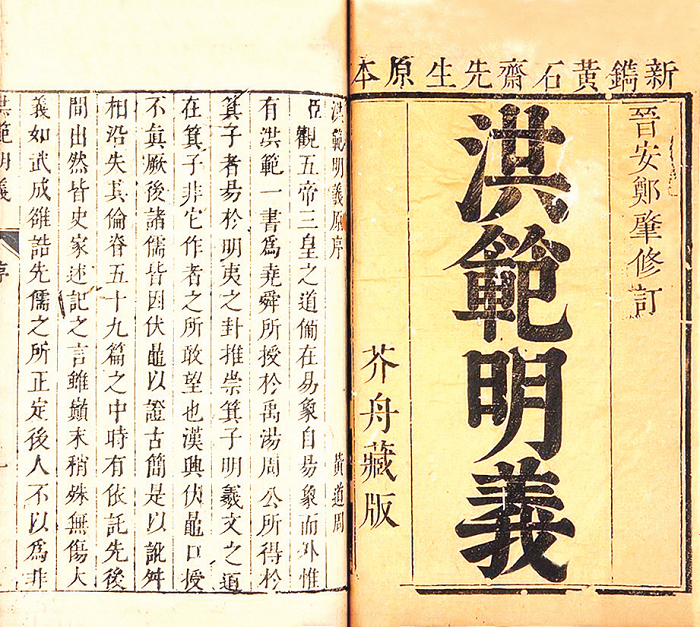 新鐫黃石齋先生原本
晉安鄭肇修訂
洪範明義
芥舟藏版
洪範明義原序 黃道周
臣觀五帝三皇之道備在易象自易象而外惟
有洪範一書為堯舜所授於禹湯周公所得於
箕子者易於明夷之卦推崇箕子明羲文之道
在箕子非它作者之所敢望也漢興伏鼂口授
不眞厥後諸儒皆因伏鼂以證古簡是以訛舛
相沿失其倫脊五十九篇之中時有依託先後
間出然皆史家述記之言雖巔末稍殊無傷大
義如武成雒誥先儒之所正定後人不以為非
洪範明義 序 一